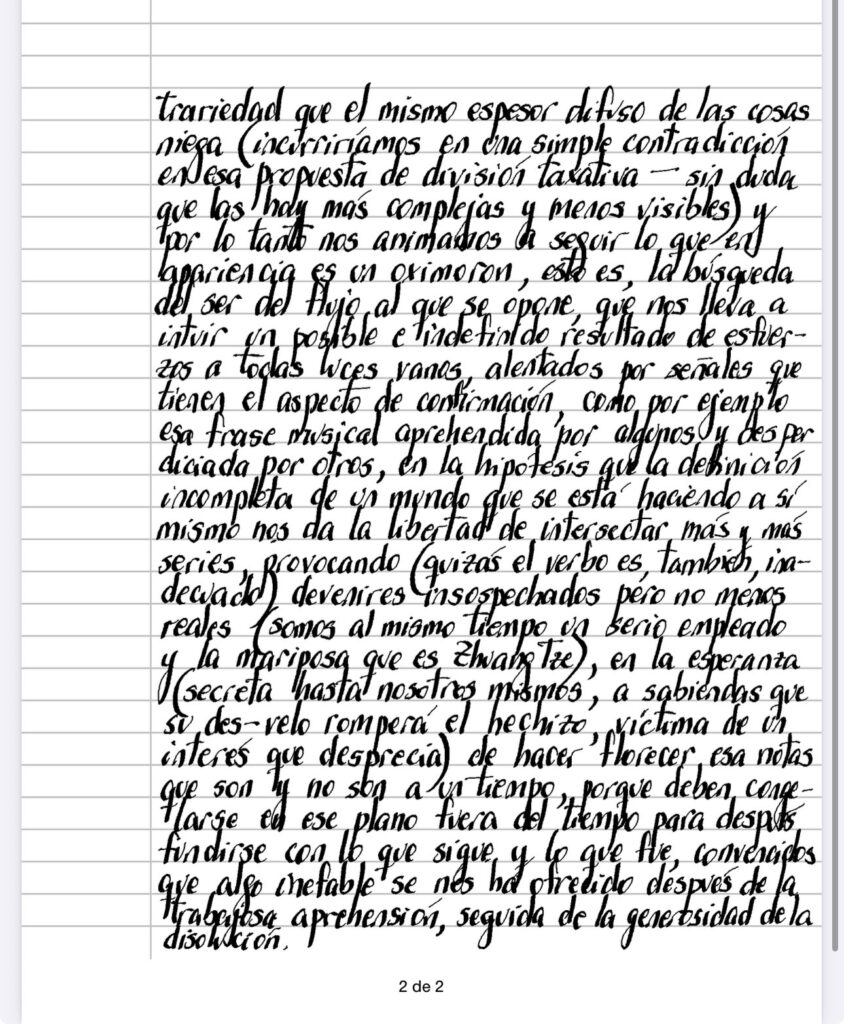 trariedad que el mismo espesor difuso de las cosas
niega (incurriríamos en una simple contradicción
en esa propuesta de división taxativa — sin duda
que las hay más complejas y menos visibles) y
por lo tanto nos animamos a seguir lo que en
apariencia es un oximoron, esto es, la búsqueda
del ser del flujo al que se opone, que nos lleva a
intuir un posible e indefinido resultado de esfuer-
zos a todas luces vanos, alentados por señales que
tienen el aspecto de confirmación, como por ejemplo
esa frase musical aprehendida por algunos y desper
diciada por otros, en la hipótesis que la definición
incompleta de un mundo que se está haciendo a sí
mismo nos da la libertad de intersectar más y más
series, provocando (quizás el verbo es, también, ina-
decuado) devenires insospechados pero no menos
reales (somos al mismo tiempo un serio empleado
y la mariposa que es Zhuang Tze), en la esperanza
(secreta hasta nosotros mismos, a sabiendas que
su des-velo romperá el hechizo, víctima de un
interés que desprecia) de hacer florecer esa notas
que son y no son a un tiempo, porque deben conge-
larse en ese plano fuera del tiempo para después
fundirse con lo que sigue y lo que fue, convencidos
que algo inefable se nos ha ofrecido después de la
trabajosa aprehensión, seguida de la generosidad de la
disolución.
2 de 2